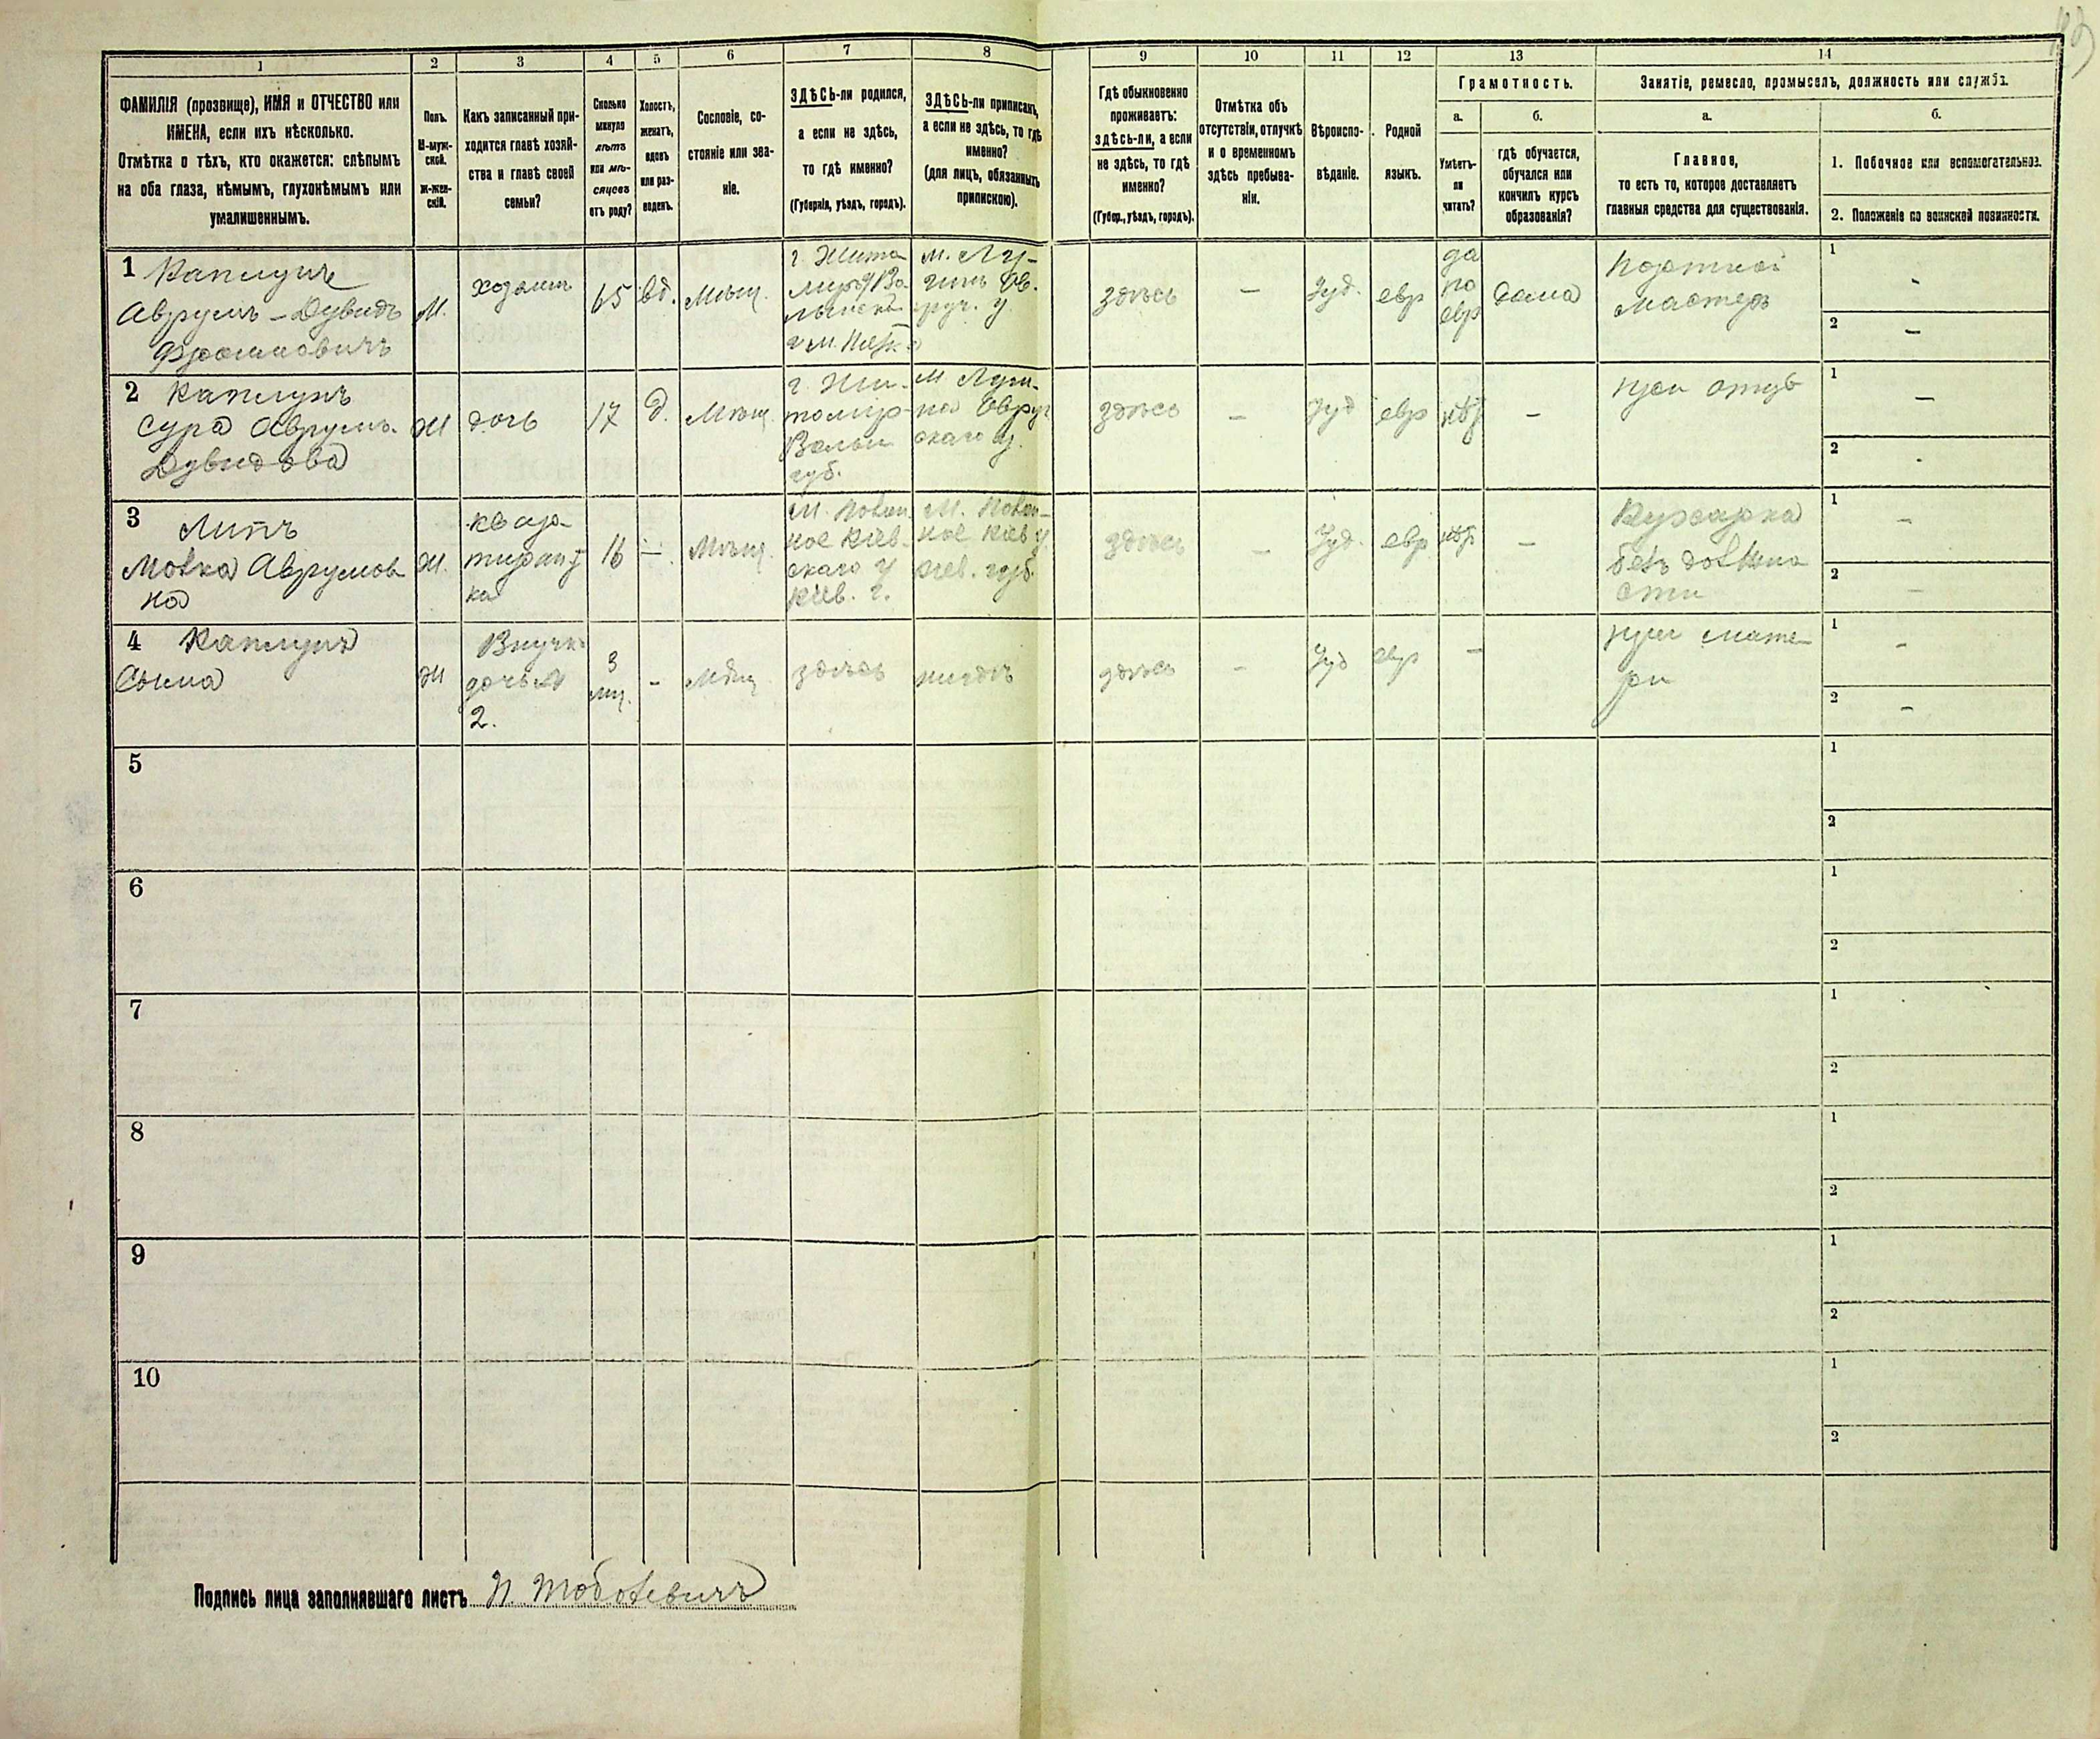 1
2
3
4
5
6
7
8
9
10
11
12
13
14
ФАМИЛІЯ (прозвище), ИМЯ и ОТЧЕСТВО или
ИМЕНА, если ихъ нѣсколько.
Отмѣтка о тѣхъ, кто окажется: слѣпымъ
на оба глаза, нѣмымъ, глухонѣмымъ или
умалишеннымъ.
Полъ.
М-муж-
ской.
Ж-жен-
скій.
Какъ записанный при-
ходится главѣ хозяй-
ства и главѣ своей
семьи?
Сколько
минуло
лѣтъ
или мѣ-
сяцевъ
отъ роду?
Холостъ,
женатъ,
вдовъ
или раз-
веденъ.
Сословіе, со-
стояніе или зва-
ніе.
ЗДѢСЬ-ли родился,
а если не здѣсь,
то гдѣ именно?
(Губернія, уѣздъ, городъ).
ЗДѢСЬ-ли приписанъ,
а если не здѣсь, то гдѣ
именно?
(для лицъ, обязанныхъ
припискою).
Гдѣ обыкновенно
проживаетъ:
здѣсь-ли, а если
не здѣсь, то гдѣ
именно?
(Губер., уѣздъ, городъ).
Отмѣтка объ
отсутствіи, отлучкѣ
и о временномъ
здѣсь пребыва-
ніи.
Вѣроиспо-
вѣданіе.
Родной
языкъ.
Грамотность.
а.
Умѣетъ-
ли
читать?
б.
гдѣ обучается,
обучался или
кончилъ курсъ
образованія?
Занятіе, ремесло, промыселъ, должность или служба.
а.
Главное,
то есть то, которое доставляетъ
главныя средства для существованія.
б.
1. Побочное или вспомогательное.
2. Положеніе по воинской повинности.
1 Каплунъ
Аврумъ-Дувидъ
М.
хозяин
65
вд.
Мѣщ.
г. Жито
миръ Во
м. Лу-
гинъ Ов.
руч. у
здѣсь
-
Іуд.
евр
да
по
евр
дома
Портной
Мастеръ
1
-
2
-
2 Каплунъ
Сура Аврумъ-
Дувидова
Ж
дочь
17
д.
Мѣщ.
г. Жи-
томир
Волын
губ.
м Луги-
на Овруч
скаго у.
здѣсь
-
Іуд
евр
нѣт
-
при отцѣ
1
-
2
-
3 Липъ
Мовка Аврумов
на
Ж.
квар
тирант
ка
16
-
Мѣщ.
кое Кіев-
скаго у
Кіев. г.
кое Кіев у
Кіев. губ.
здѣсь
-
Іуд.
евр
нѣт
-
Кухарка
безъ должно
сти
1
-
2
-
4 Каплунъ
Ж
Внучка
дочь №
2.
3
мѣ.
-
Мѣщ
здѣсь
нигдѣ
здѣсь
-
Іуд
евр
-
при мате-
ри
1
-
2
-
5
1
2
6
1
2
7
1
2
8
1
2
9
1
2
10
1
2
Подпись лица заполнявшаго листъ